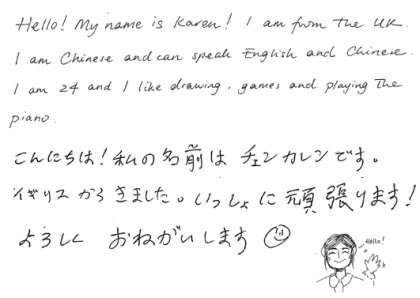 Hello! My name is Karen! I am from the UK.
I am Chinese and can speak English and Chinese.
I am 24 and I like drawing, games and playing the
piano.
こんにちは!私の名前は チェン カレンです。
イギリス から きました。いっしょに 頑張ります!
よろしく おねがいします
Hello!